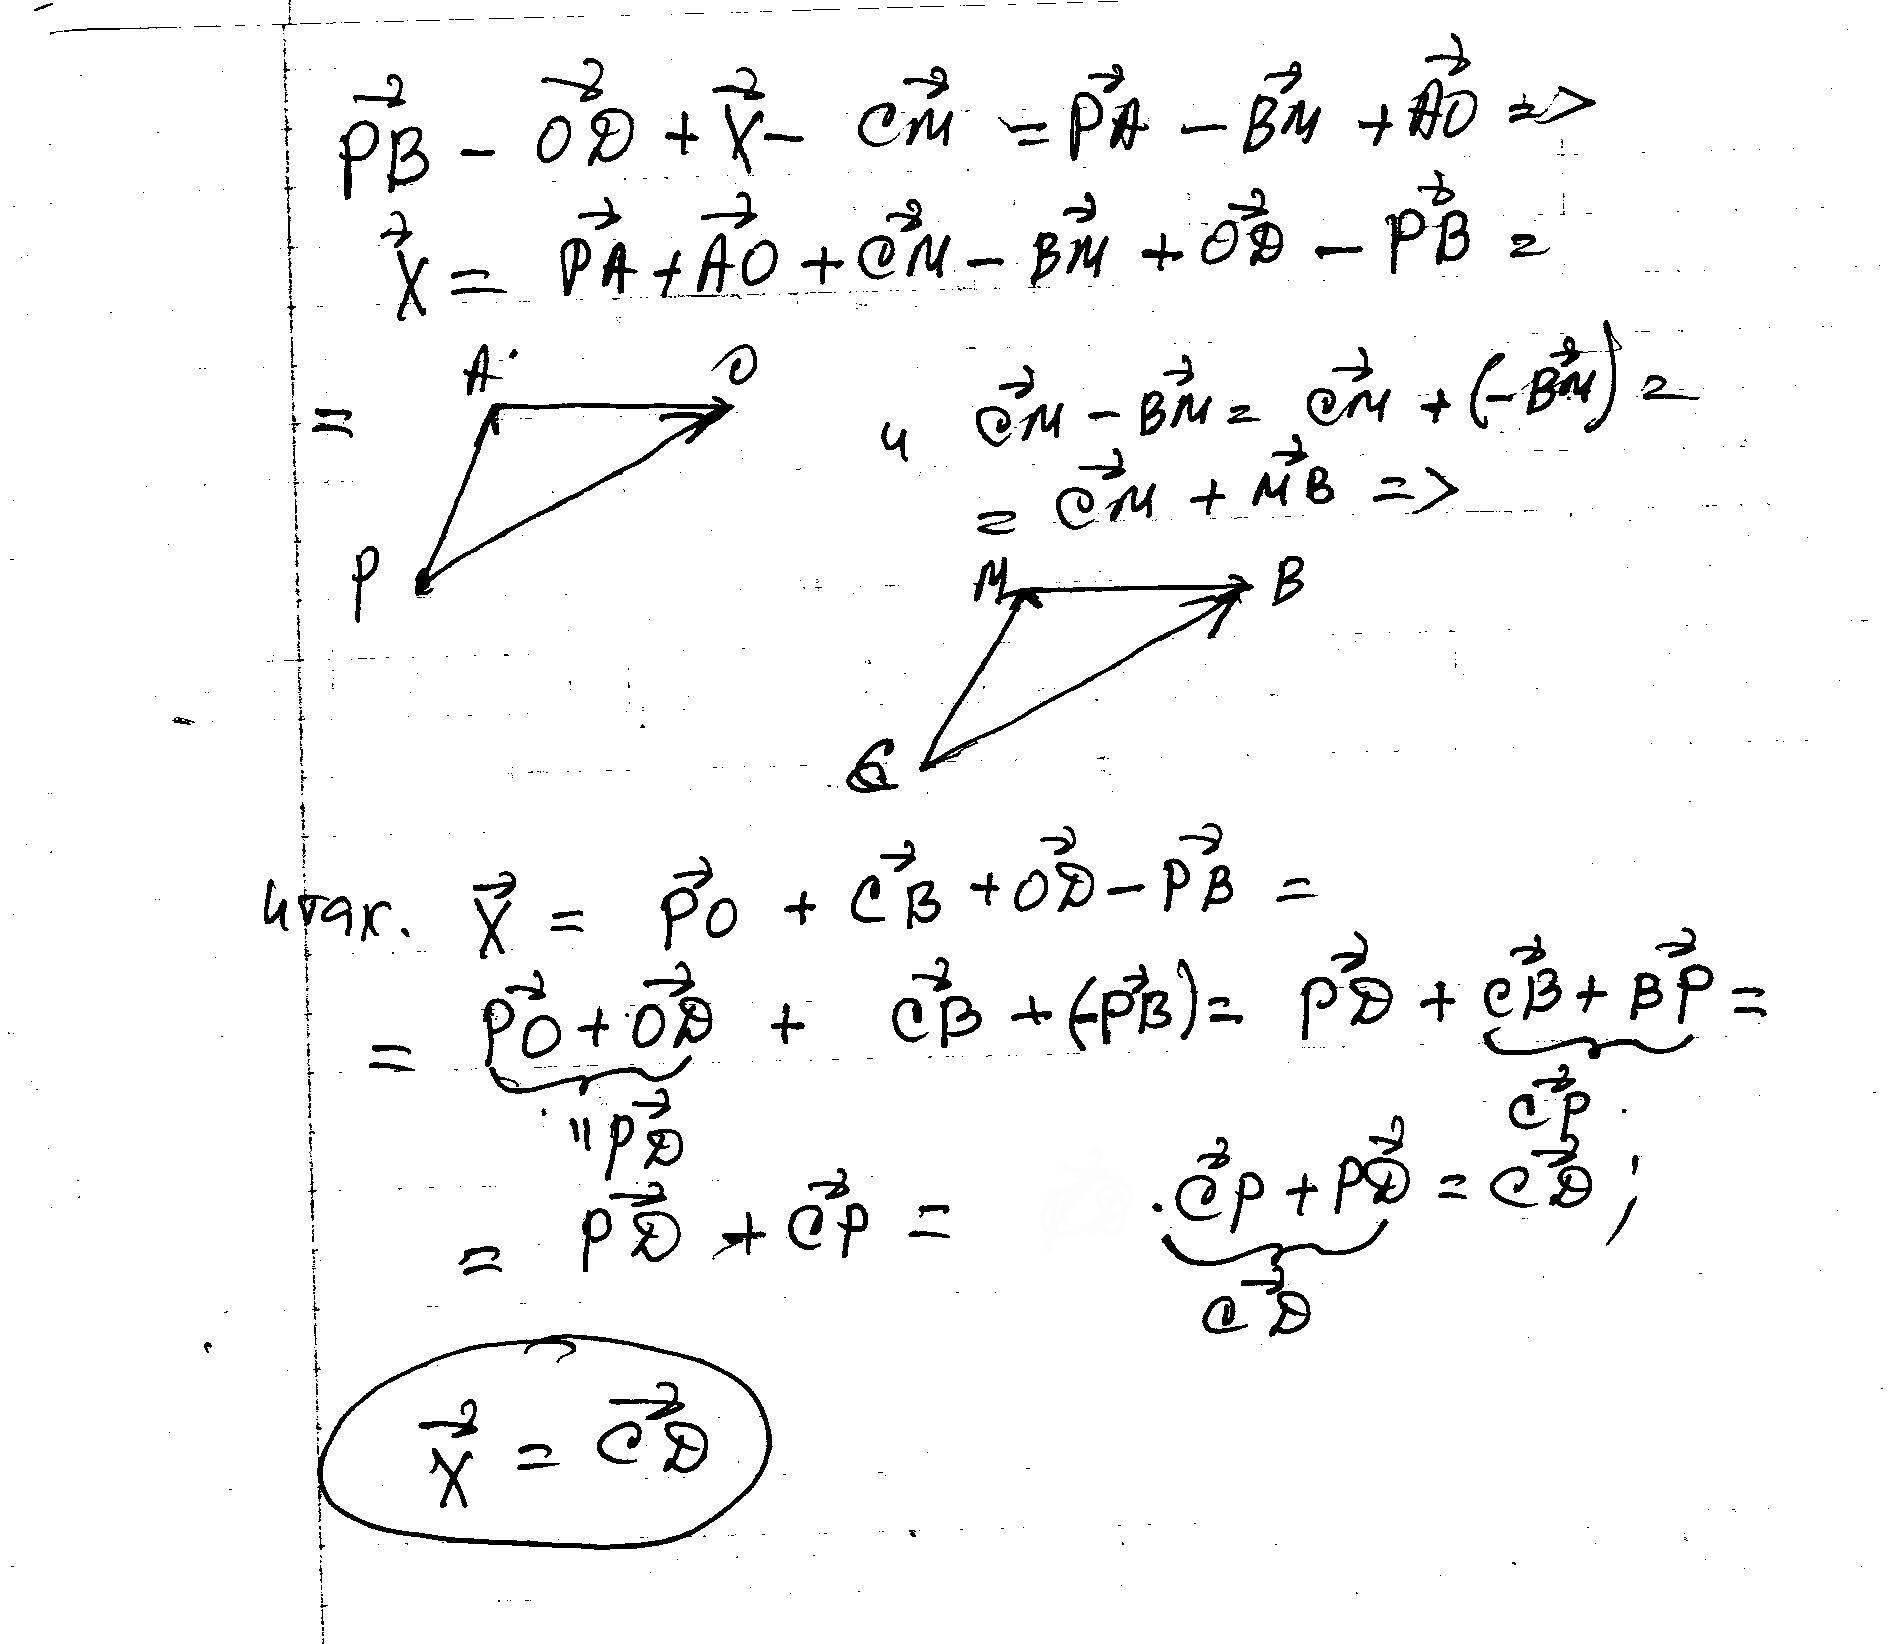 PB⃗ - OD⃗ + X⃗ - CM⃗ = PA⃗ - BM⃗ + AO⃗ =>
X⃗ = PA⃗ + AO⃗ + CM⃗ - BM⃗ + OD⃗ - PB⃗ =
= A O P и CM⃗ - BM⃗ = CM⃗ + (-BM⃗) =
= CM⃗ + MB⃗ =>
M B
C
итак. X⃗ = PO⃗ + CB⃗ + OD⃗ - PB⃗ =
= PO⃗ + OD⃗ + CB⃗ + (-PB⃗) = PD⃗ + CB⃗ + BP⃗ =
"PD⃗ CP⃗
= PD⃗ + CP⃗ = CP⃗ + PD⃗ = CD⃗;
CD⃗
X⃗ = CD⃗